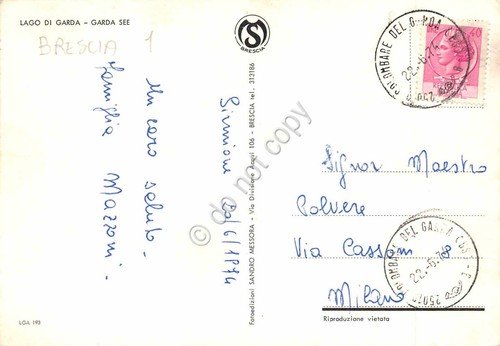 LAGO DI GARDA - GARDA SEE
BRESCIA 1
S
BRESCIA
Un caro saluto -
famiglia Mazzoni -
Sirmione 20/6/1974
Fotoedizioni SANDRO MESSORA - Via Divisione Acqui 106 - BRESCIA - tel. 313186
do not copy
COLOMBARE DEL G
22.-6.74
40
Signor Maestro
Polvere
Via Cassoni 8
Milano
COLOMBARE DEL GARDA (BS)
22.-6.74
25010
LGA 193
Riproduzione vietata